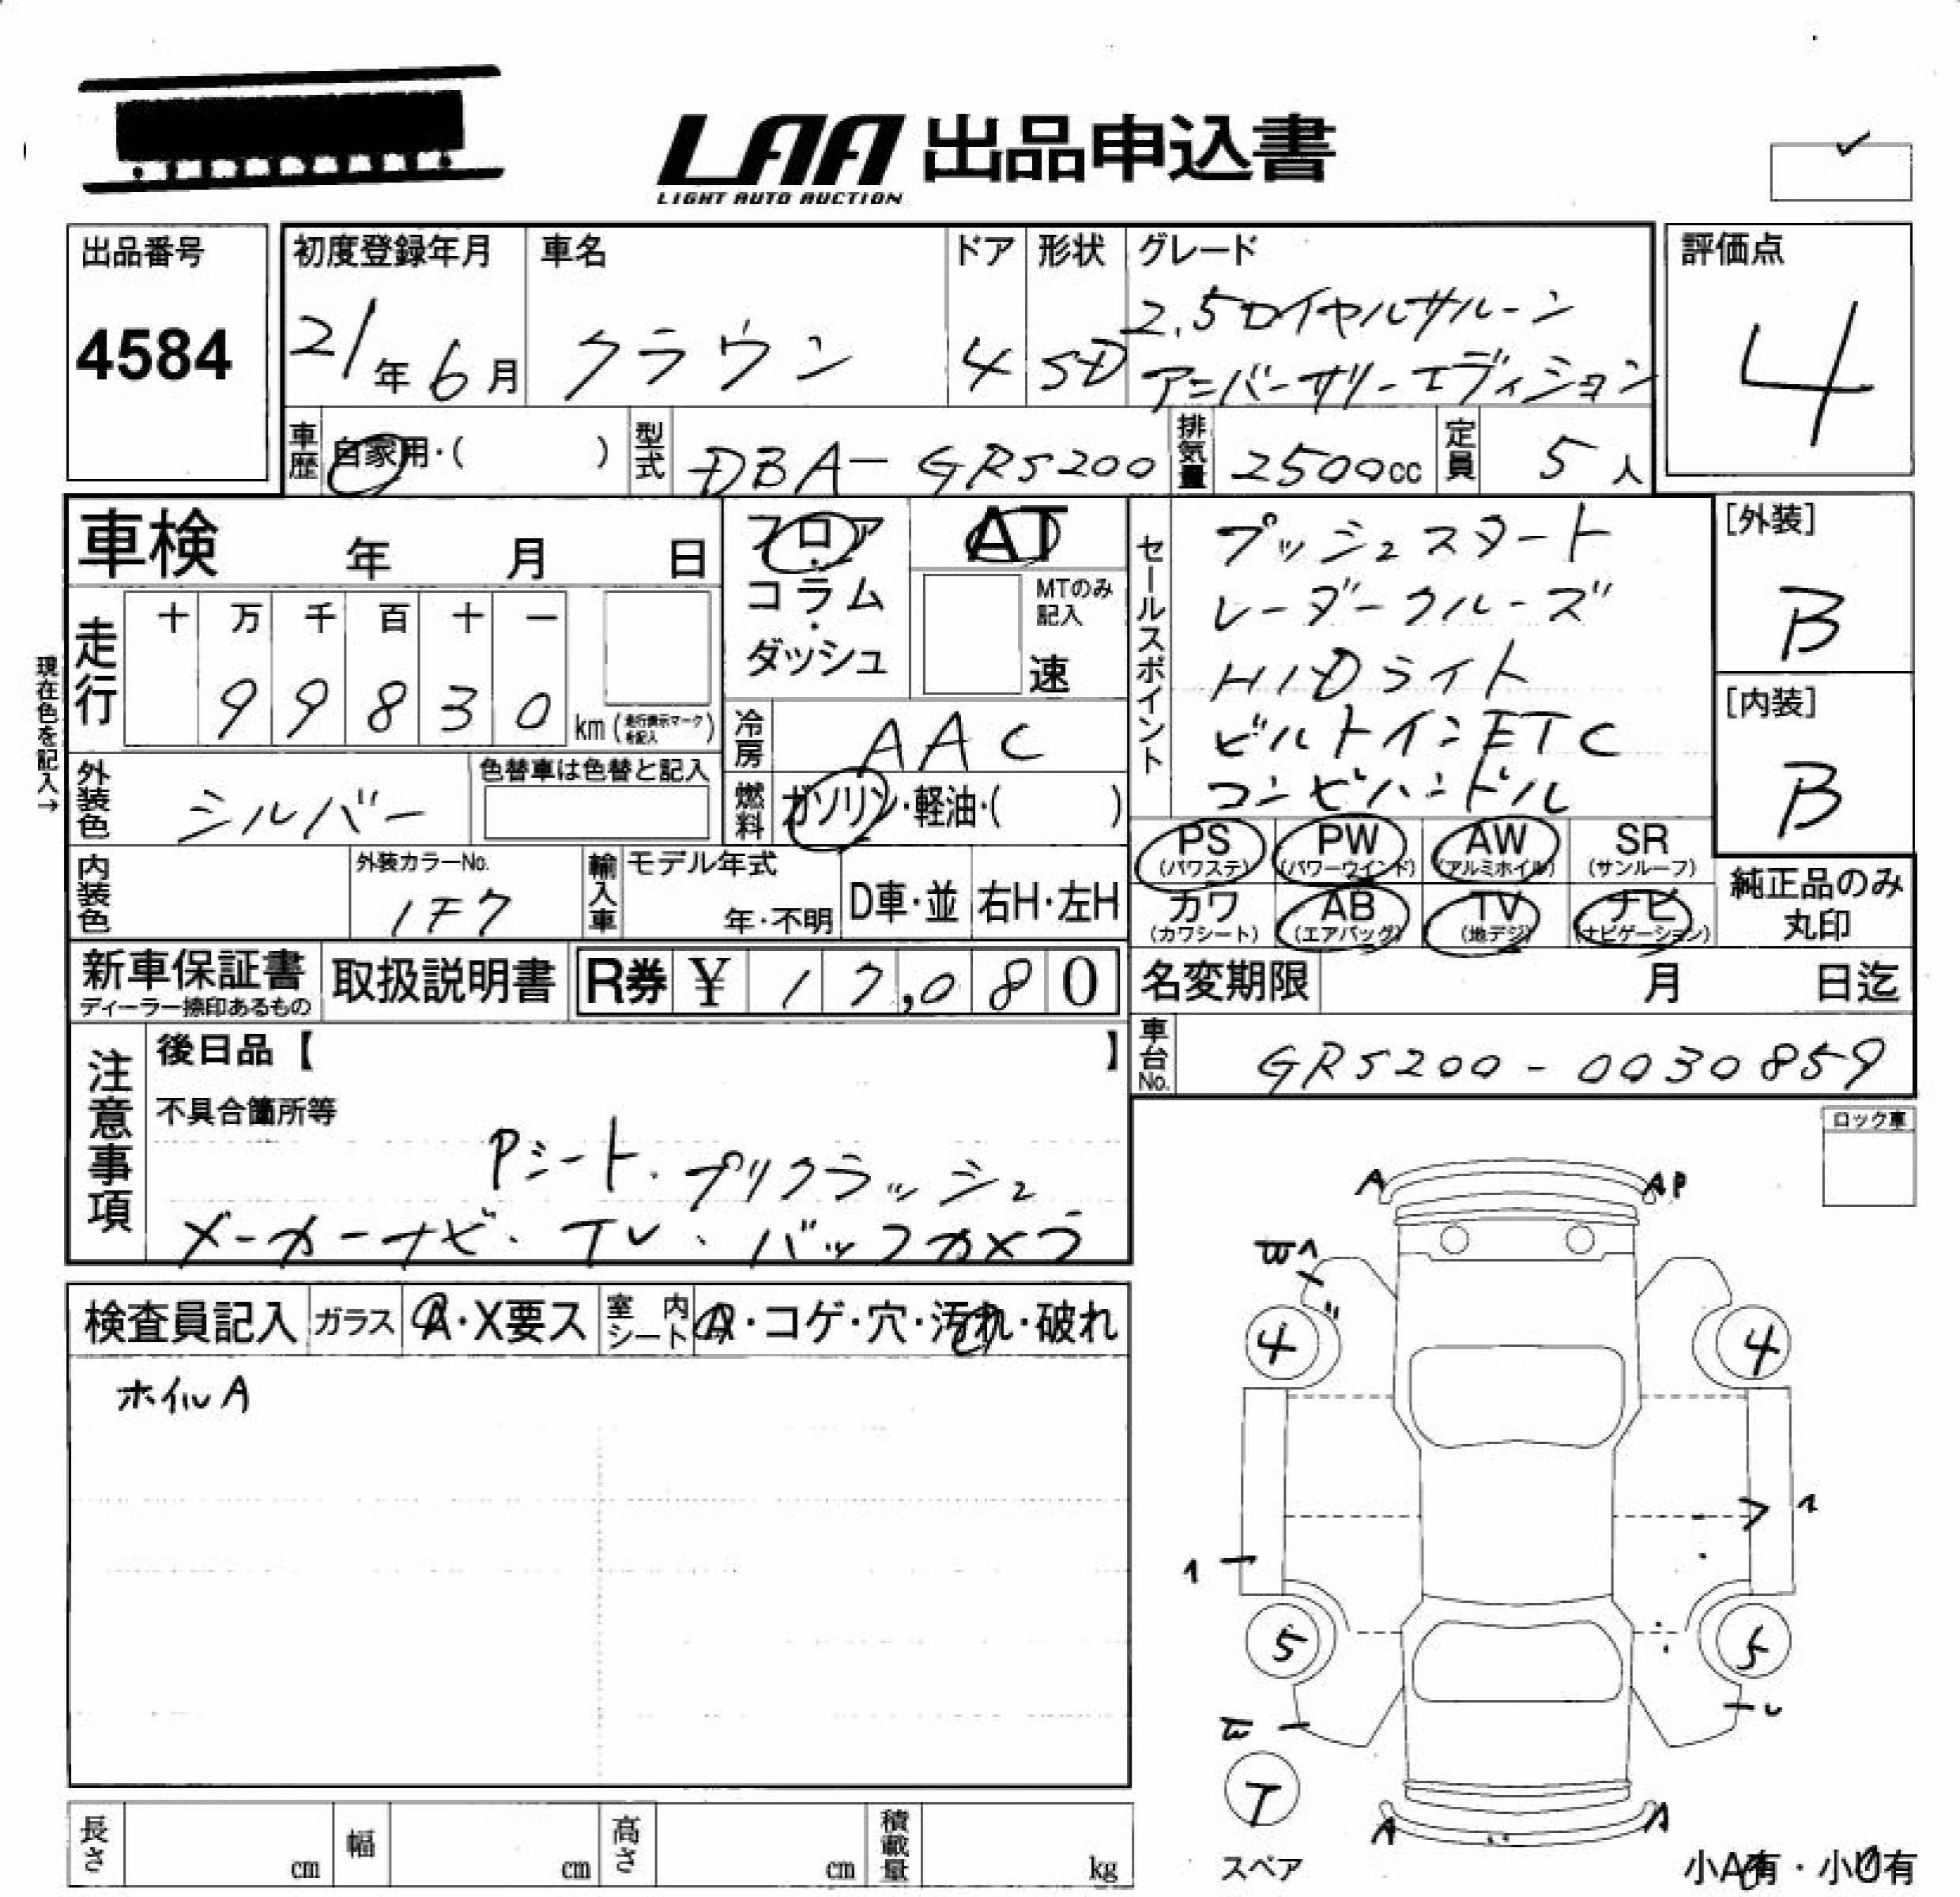 LAA 出品申込書
LIGHT AUTO AUCTION
出品番号
4584
初度登録年月
21年6月
車名
クラウン
ドア
4
形状
SD
グレード
2.5ロイヤルサルーン
アニバーサリーエディション
評価点
4
車歴
自家用・( )
型式
DBA-GRS200
排気量
2500cc
定員
5人
車検 年 月 日
現在色を記入→
走行
十 万 千 百 十 一
9 9 8 3 0 km (走行表示マークを記入)
フロア・コラム・ダッシュ
AT
MTのみ記入
速
冷房
AAC
燃料
ガソリン・軽油・( )
外装色
シルバー
色替車は色替と記入
内装色
外装カラーNo.
1F7
輸入車
モデル年式
年・不明
D車・並
右H・左H
セールスポイント
プッシュスタート
レーダークルーズ
HIDライト
ビルトインETC
コンビハンドル
[外装]
B
[内装]
B
PS (パワステ)
PW (パワーウインド)
AW (アルミホイル)
SR (サンルーフ)
カワ (カワシート)
AB (エアバッグ)
TV (地デジ)
ナビ (ナビゲーション)
純正品のみ丸印
新車保証書
ディーラー捺印あるもの
取扱説明書
R券 ¥ 17,080
名変期限 月 日迄
車台No.
GRS200-0030859
注意事項
後日品【 】
不具合箇所等
Pシート・プリクラッシュ
メーカーナビ・TV・バックカメラ
ロック車
検査員記入
ガラス
A・X要ス
室内シート
A・コゲ・穴・汚れ・破れ
ホイルA
A
AP
4
4
1
5
5
T
スペア
A
A
小A有・小U有
長さ cm
幅 cm
高さ cm
積載量 kg